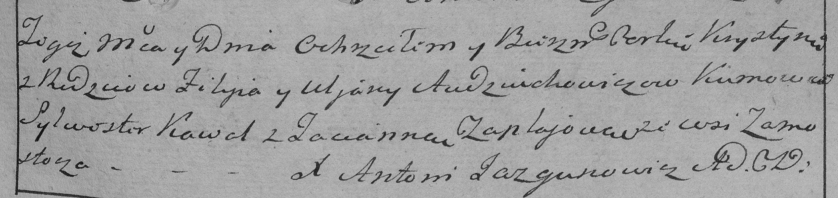 Tegoż Mca y Dnia Ochrzciłem y Bierzm Corkie Krystyne
z Rodziców Filipa y Uljany Audziuchowiczow Kumow
Sylwester Kowal z Tacianną Zaplajową ze wsi Zamo
stocza - - - - X Antoni Jazgunowicz AD. CD: